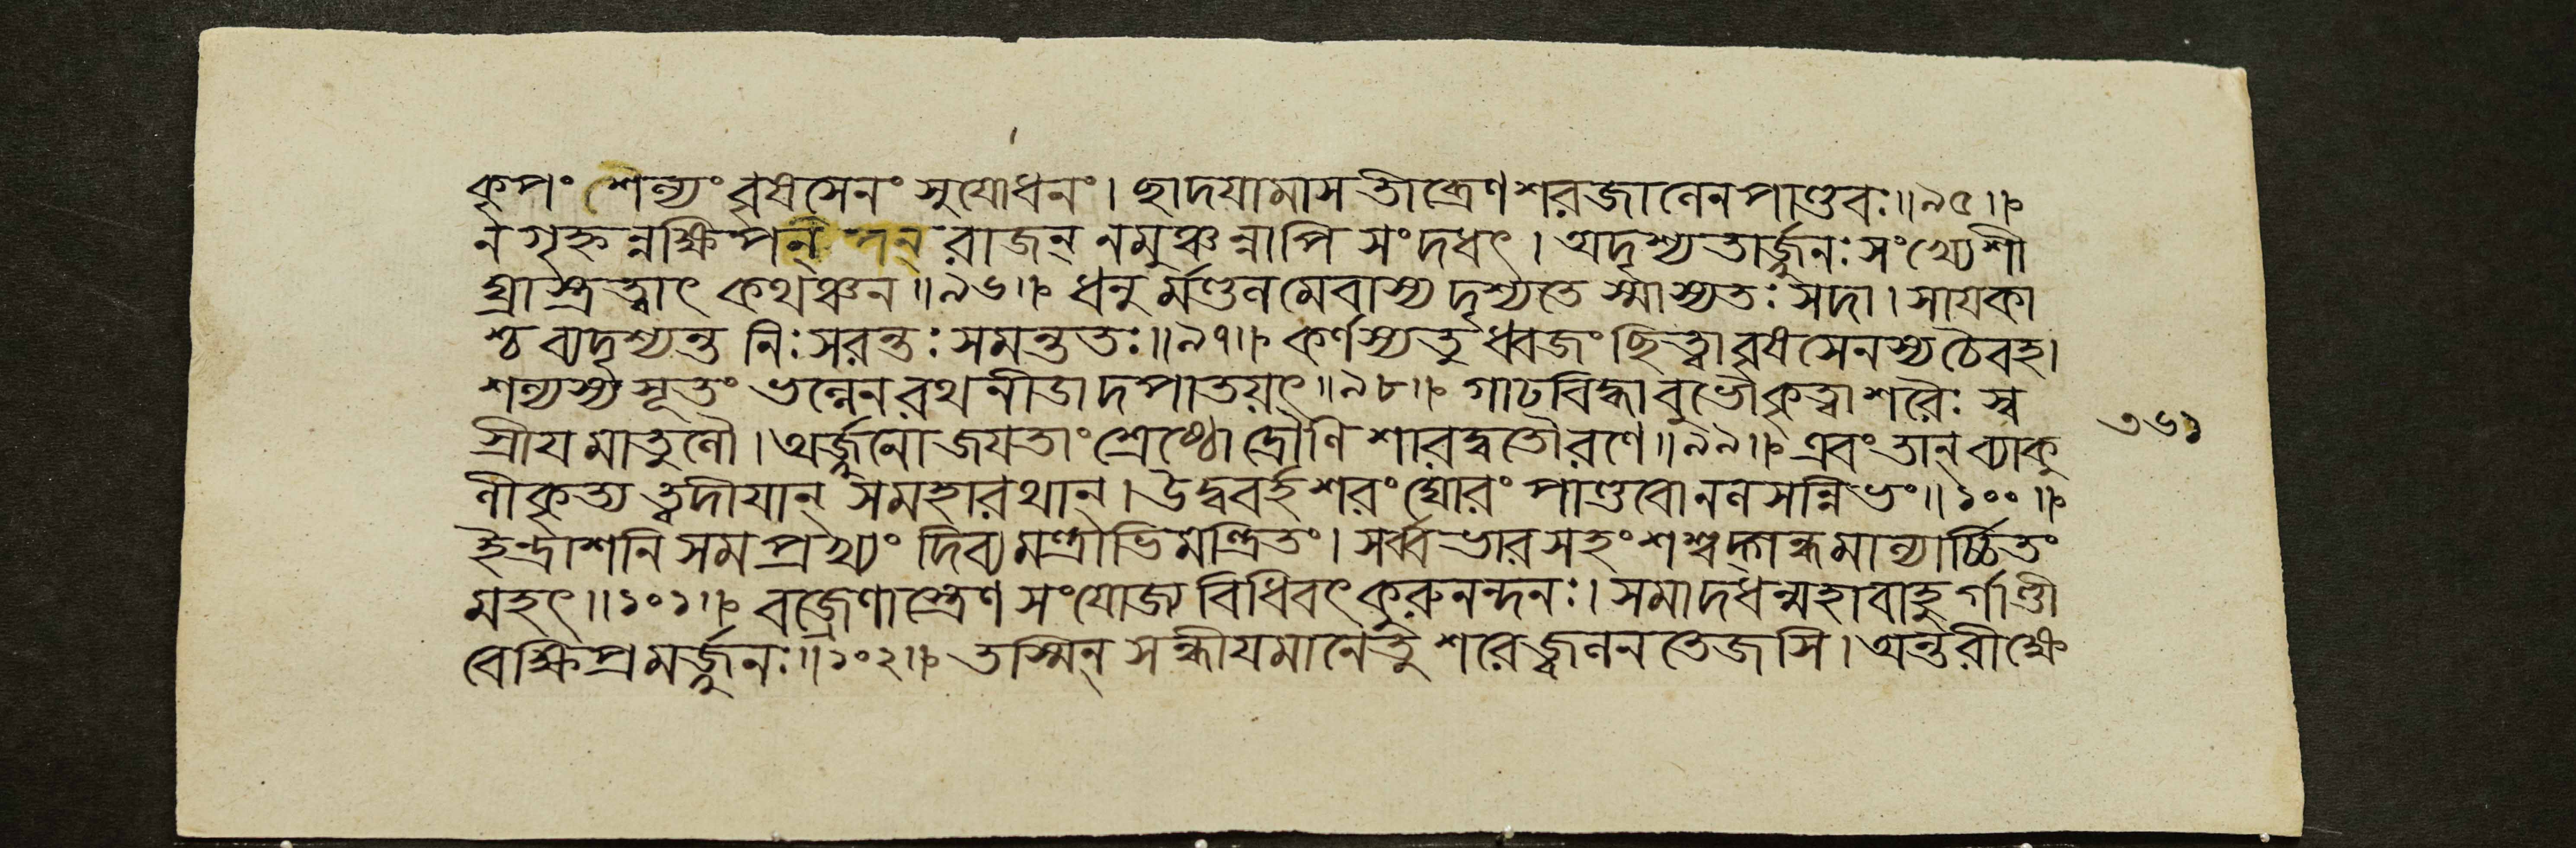 কৃপং শৈল্যং বৃষসেনং সুযোধনং। ছাদযামাস তীব্রেণ শরজালেন পাণ্ডবঃ॥৯৫॥
ন গৃহ্নন্নক্ষিপন্ রাজন্ ন মুঞ্চন্নাপি সংদধৎ। অদৃশ্যতার্জ্জুনঃ সংখ্যে শী
ঘ্রাস্ত্রত্বাৎ কথঞ্চন॥৯৬॥ ধনুর্মণ্ডলমেবাস্য দৃশ্যতে স্মাস্যতঃ সদা। সাযকা
শ্চ ব্যদৃশ্যন্ত নিঃসরন্তঃ সমন্ততঃ॥৯৭॥ কর্ণস্য তু ধ্বজং ছিত্বা বৃষসেনস্য চৈব হ।
শল্যস্য সূতং ভল্লেন রথনীডাদপাতয়ৎ॥৯৮॥ গাঢবিদ্ধাবুভৌ কৃত্বা শরৈঃ স্ব
স্রীয মাতুলৌ। অর্জ্জুনো জযতাং শ্রেষ্ঠো দ্রৌণিশারদ্বতৌ রণে॥৯৯॥ এবং তান্ ব্যাকু
লীকৃত্য ত্বদীযান্ স মহারথান্। উদ্ববর্হ শরং ঘোরং পাণ্ডবোনল সন্নিভং॥১০০॥
ইন্দ্রাশনি সমপ্রখ্যং দিব্যমন্ত্রাভিমন্ত্রিতং। সর্ব্বভার সহং শশ্বদ্গন্ধমাল্যার্চ্চিতং
মহৎ॥১০১॥ বজ্রেণাস্ত্রেণ সংযোজ্য বিধিবৎ কুরুনন্দনঃ। সমাদধন্মহাবাহুর্গাণ্ডী
বে ক্ষিপ্রমর্জ্জুনঃ॥১০২॥ তস্মিন্ সন্ধীযমানে তু শরে জ্বলন তেজসি। অন্তরীক্ষে
৩৬১